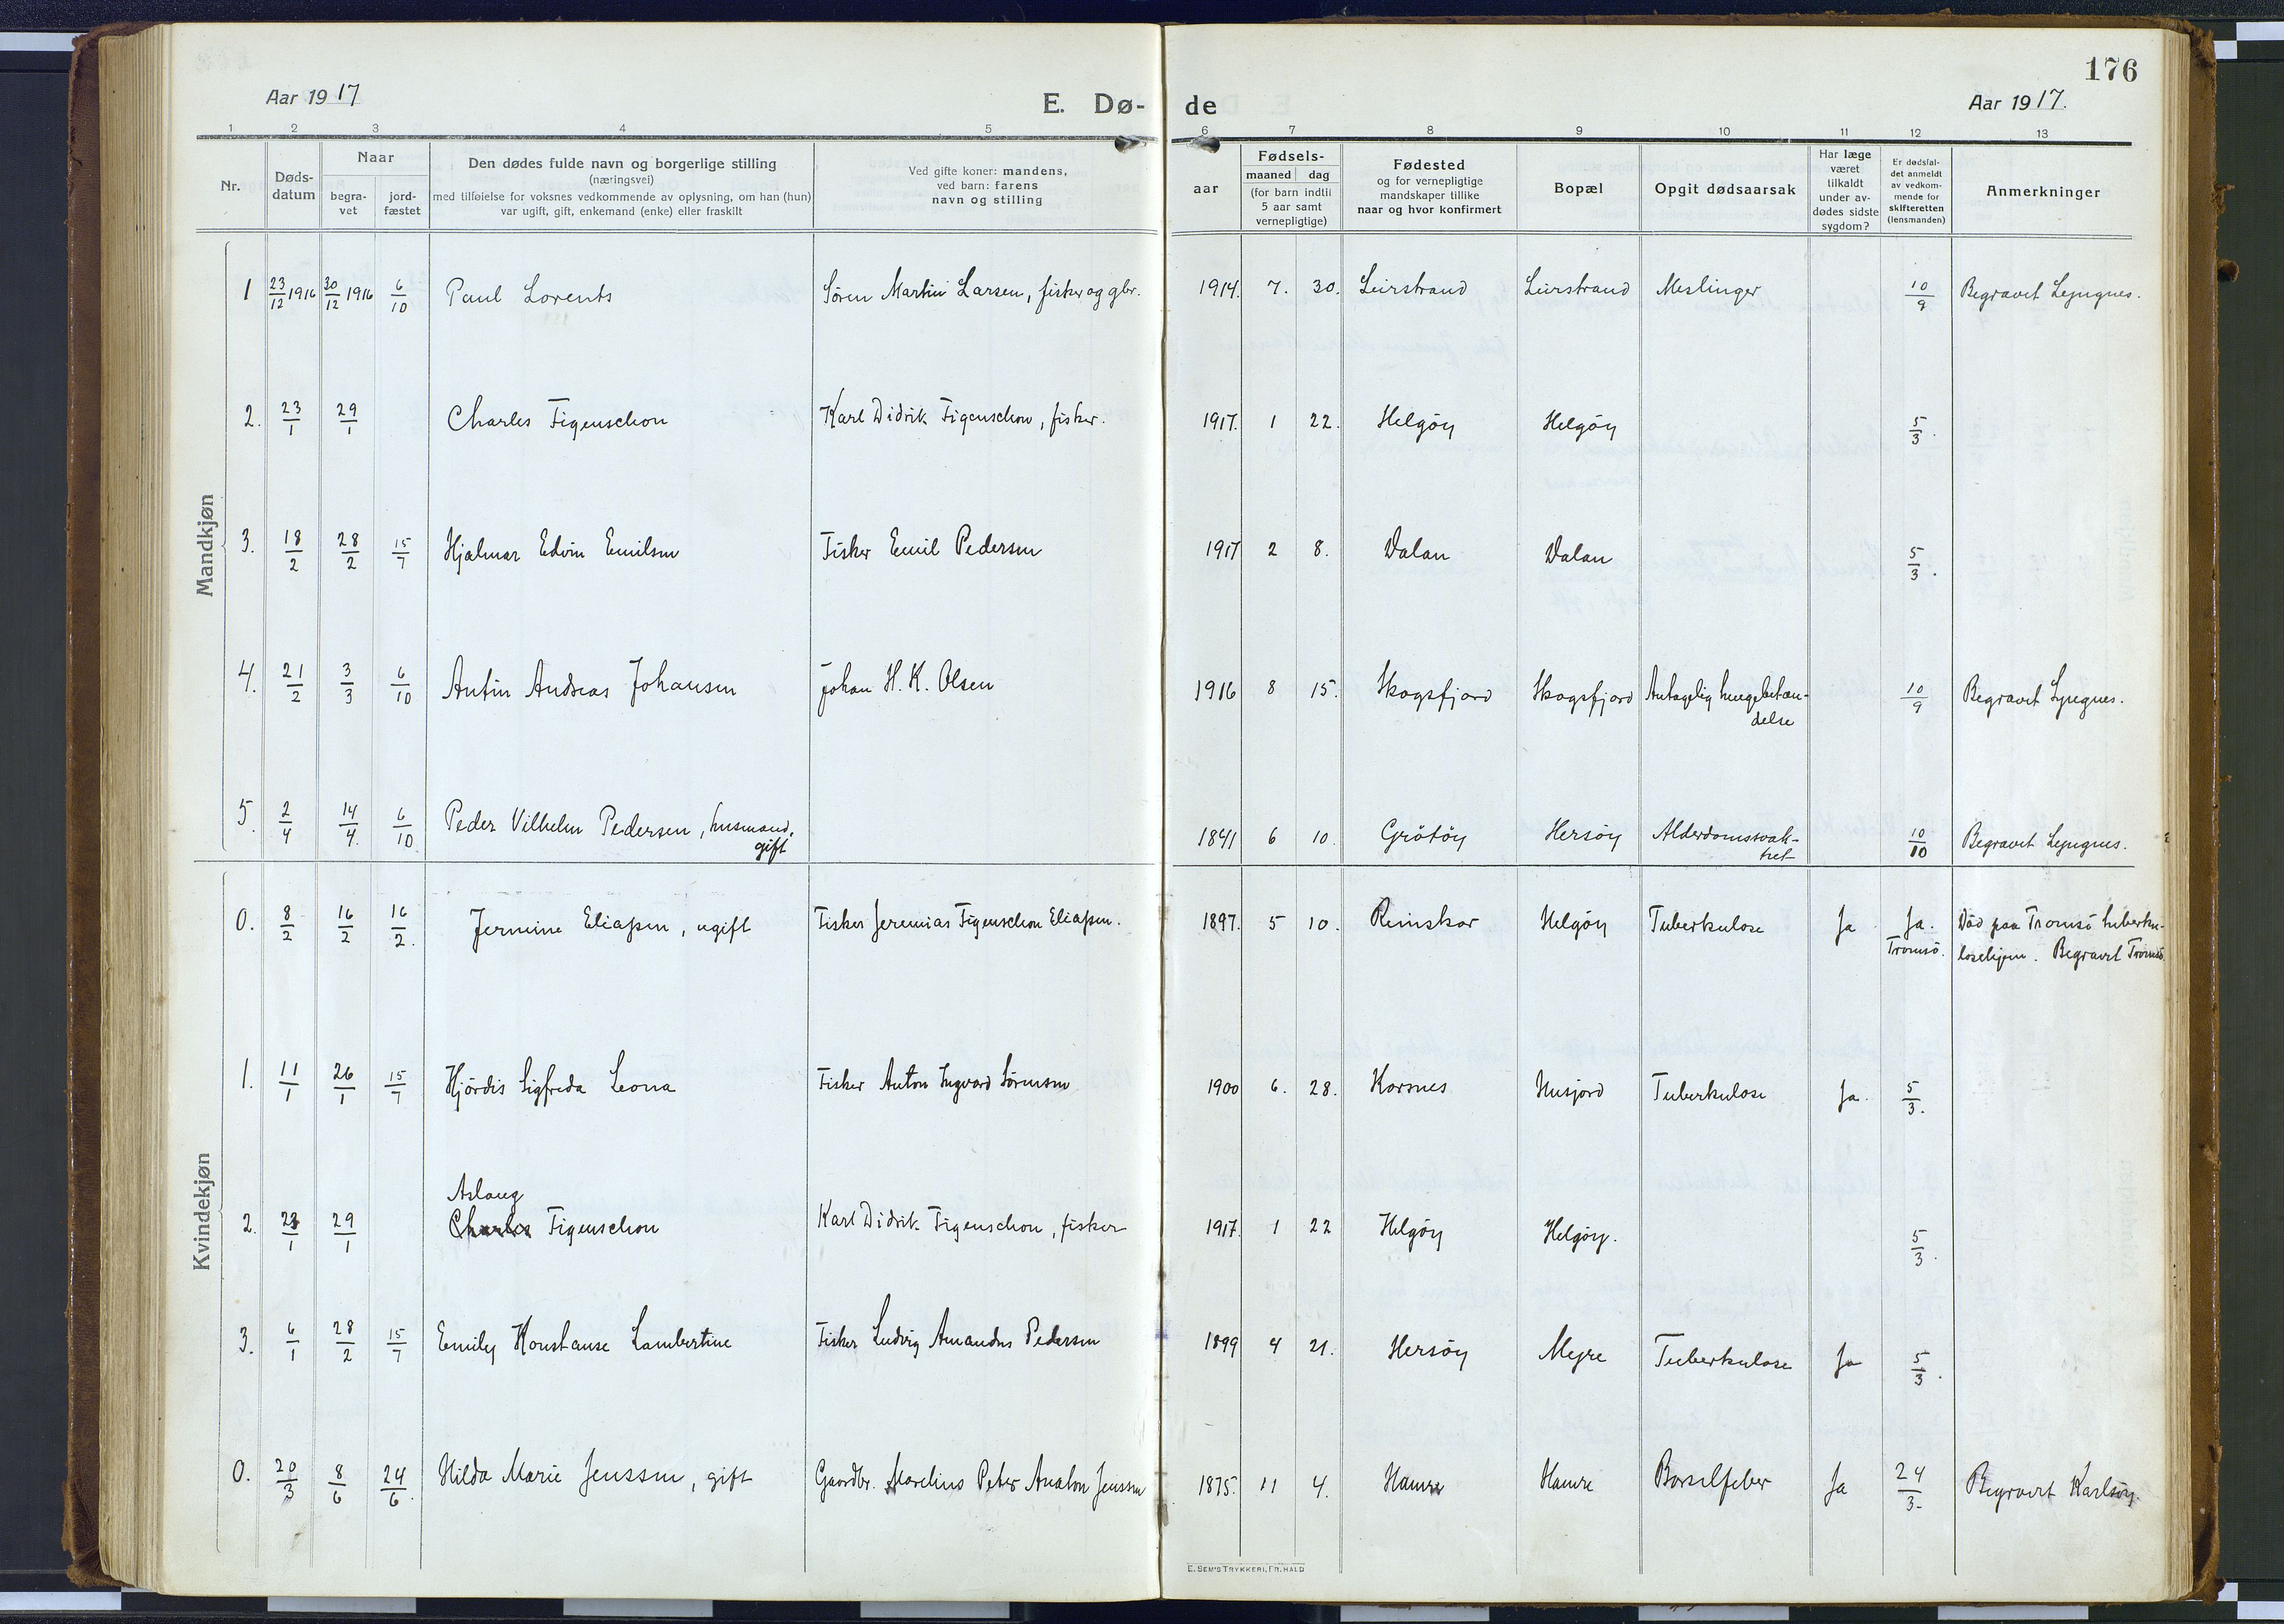 176
Aar 1917
E. Dø-
de
Aar 1917.
1 2 3 4 5 6 7 8 9 10 11 12 13
Nr.
Døds-
datum
Naar
begra-
vet
jord-
fæstet
Den dødes fulde navn og borgerlige stilling
(næringsvei)
med tilføielse for voksnes vedkommende av oplysning, om han (hun)
var ugift, gift, enkemand (enke) eller fraskilt
Ved gifte koner: mandens,
ved barn: farens
navn og stilling
aar
Fødsels-
maaned dag
(for barn indtil
5 aar samt
vernepligtige)
Fødested
og for vernepligtige
mandskaper tillike
naar og hvor konfirmert
Bopæl
Opgit dødsaarsak
Har læge
været
tilkaldt
under av-
dødes sidste
sygdom?
Er dødsfal-
det anmeldt
av vedkom-
mende for
skifteretten
(lensmanden)
Anmerkninger
Mandkjøn
1 23/12 1916 30/12 1916 6/10 Paul Lorents Søren Martin Larsen, fisker og gbr. 1914. 7. 30. Leirstrand Leirstrand Meslinger 10/9 Begravet Lyngnes.
2. 23/1 29/1 Charles Figenschou Karl Didrik Figenschou, fisker. 1917. 1 22. Helgöy Helgöy 5/3.
3. 18/2 28/2 15/7 Hjalmar Edvin Emilsen Fisker Emil Pedersen 1917 2 8. Dalan Dalan 5/3.
4. 21/2 3/3 6/10 Antin Andreas Johansen Johan H. K. Olsen 1916 8 15. Skogsfjord Skogsfjord Antagelig lungebetæn-
delse 10/9 Begravet Lyngnes.
5. 2/4 14/4. 6/10. Peder Vilhelm Pedersen, husmand,
gift 1841 6 10. Grötöy Hersöy Alderdomssvak-
het 10/10 Begravet Lyngnes.
Kvindekjøn
0. 8/2 16/2 16/2. Jermine Eliassen, ugift Fisker Jeremias Figenschou Eliassen. 1897. 5 10. Reinskar Helgöy Tuberkulose Ja Ja.
Tromsö. Död paa Tromsö tuberku-
losehjem. Begravet Tromsö.
1. 11/1 26/1 15/7 Hjördis Sigfreda Leona Fisker Anton Ingvard Sörensen 1900 6. 28. Korsnes Husjord Tuberkulose Ja. 5/3.
Aslaug
2. 23/1 29/1 Charles Figenschou Karl Didrik Figenschou, fisker 1917. 1 22 Helgöy Helgöy. 5/3.
3. 6/1 28/2 15/7 Emily Konstanse Lambertine Fisker Ludvig Amandus Pedersen 1899 4 21. Hersöy Mejre Tuberkulose Ja 5/3.
0. 20/3 8/6 24/6. Hilda Marie Jenssen, gift Gaardbr. Marelius Peter Anaton Jenssen 1875. 11 4. Hamre Hamre Barselfeber Ja 24/3- Begravet Karlsöy.
E. SEM'S TRYKKERI, FR.HALD